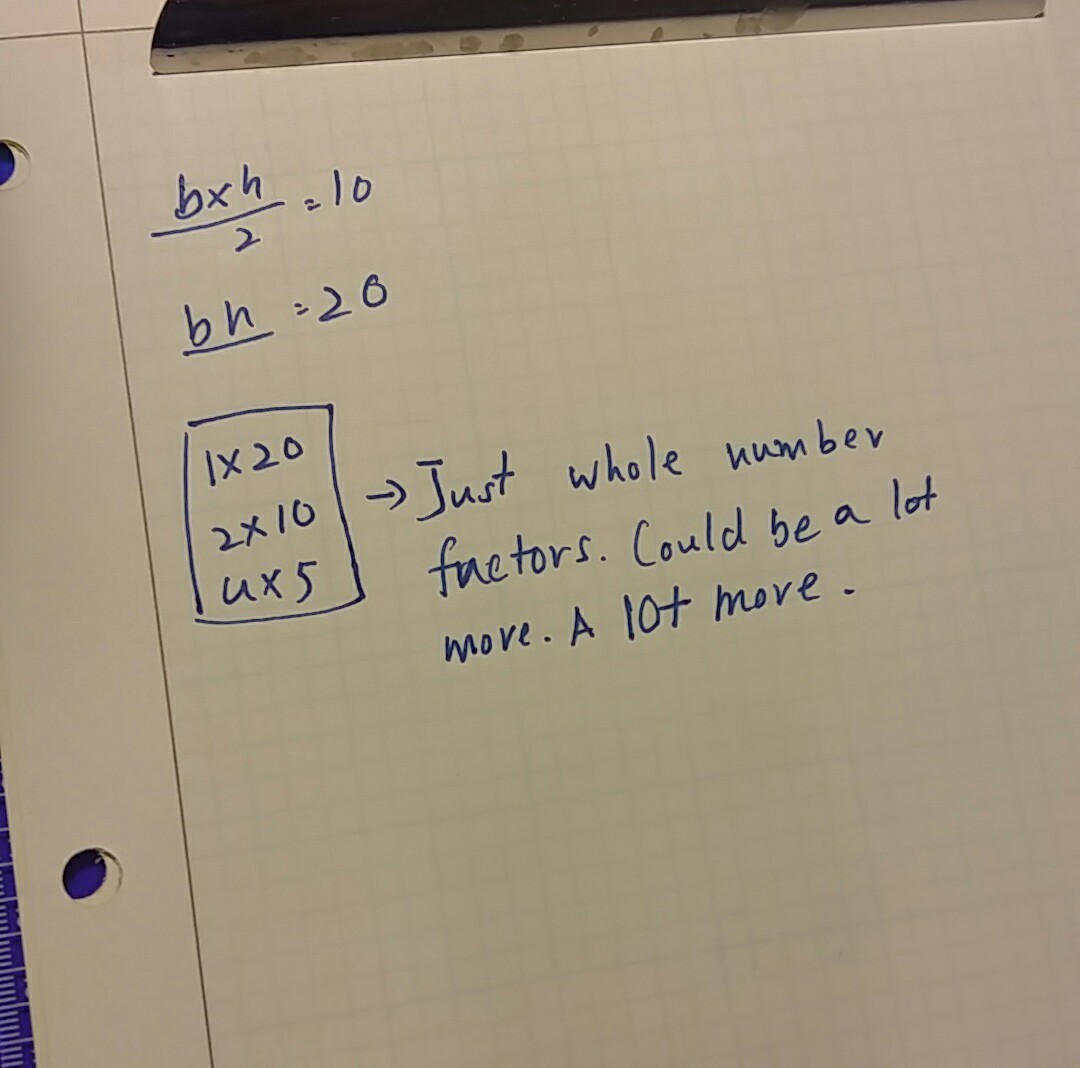 b×h/2 = 10
bh = 20
1×20
2×10
4×5
→ Just whole number
factors. Could be a lot
more. A lot more.